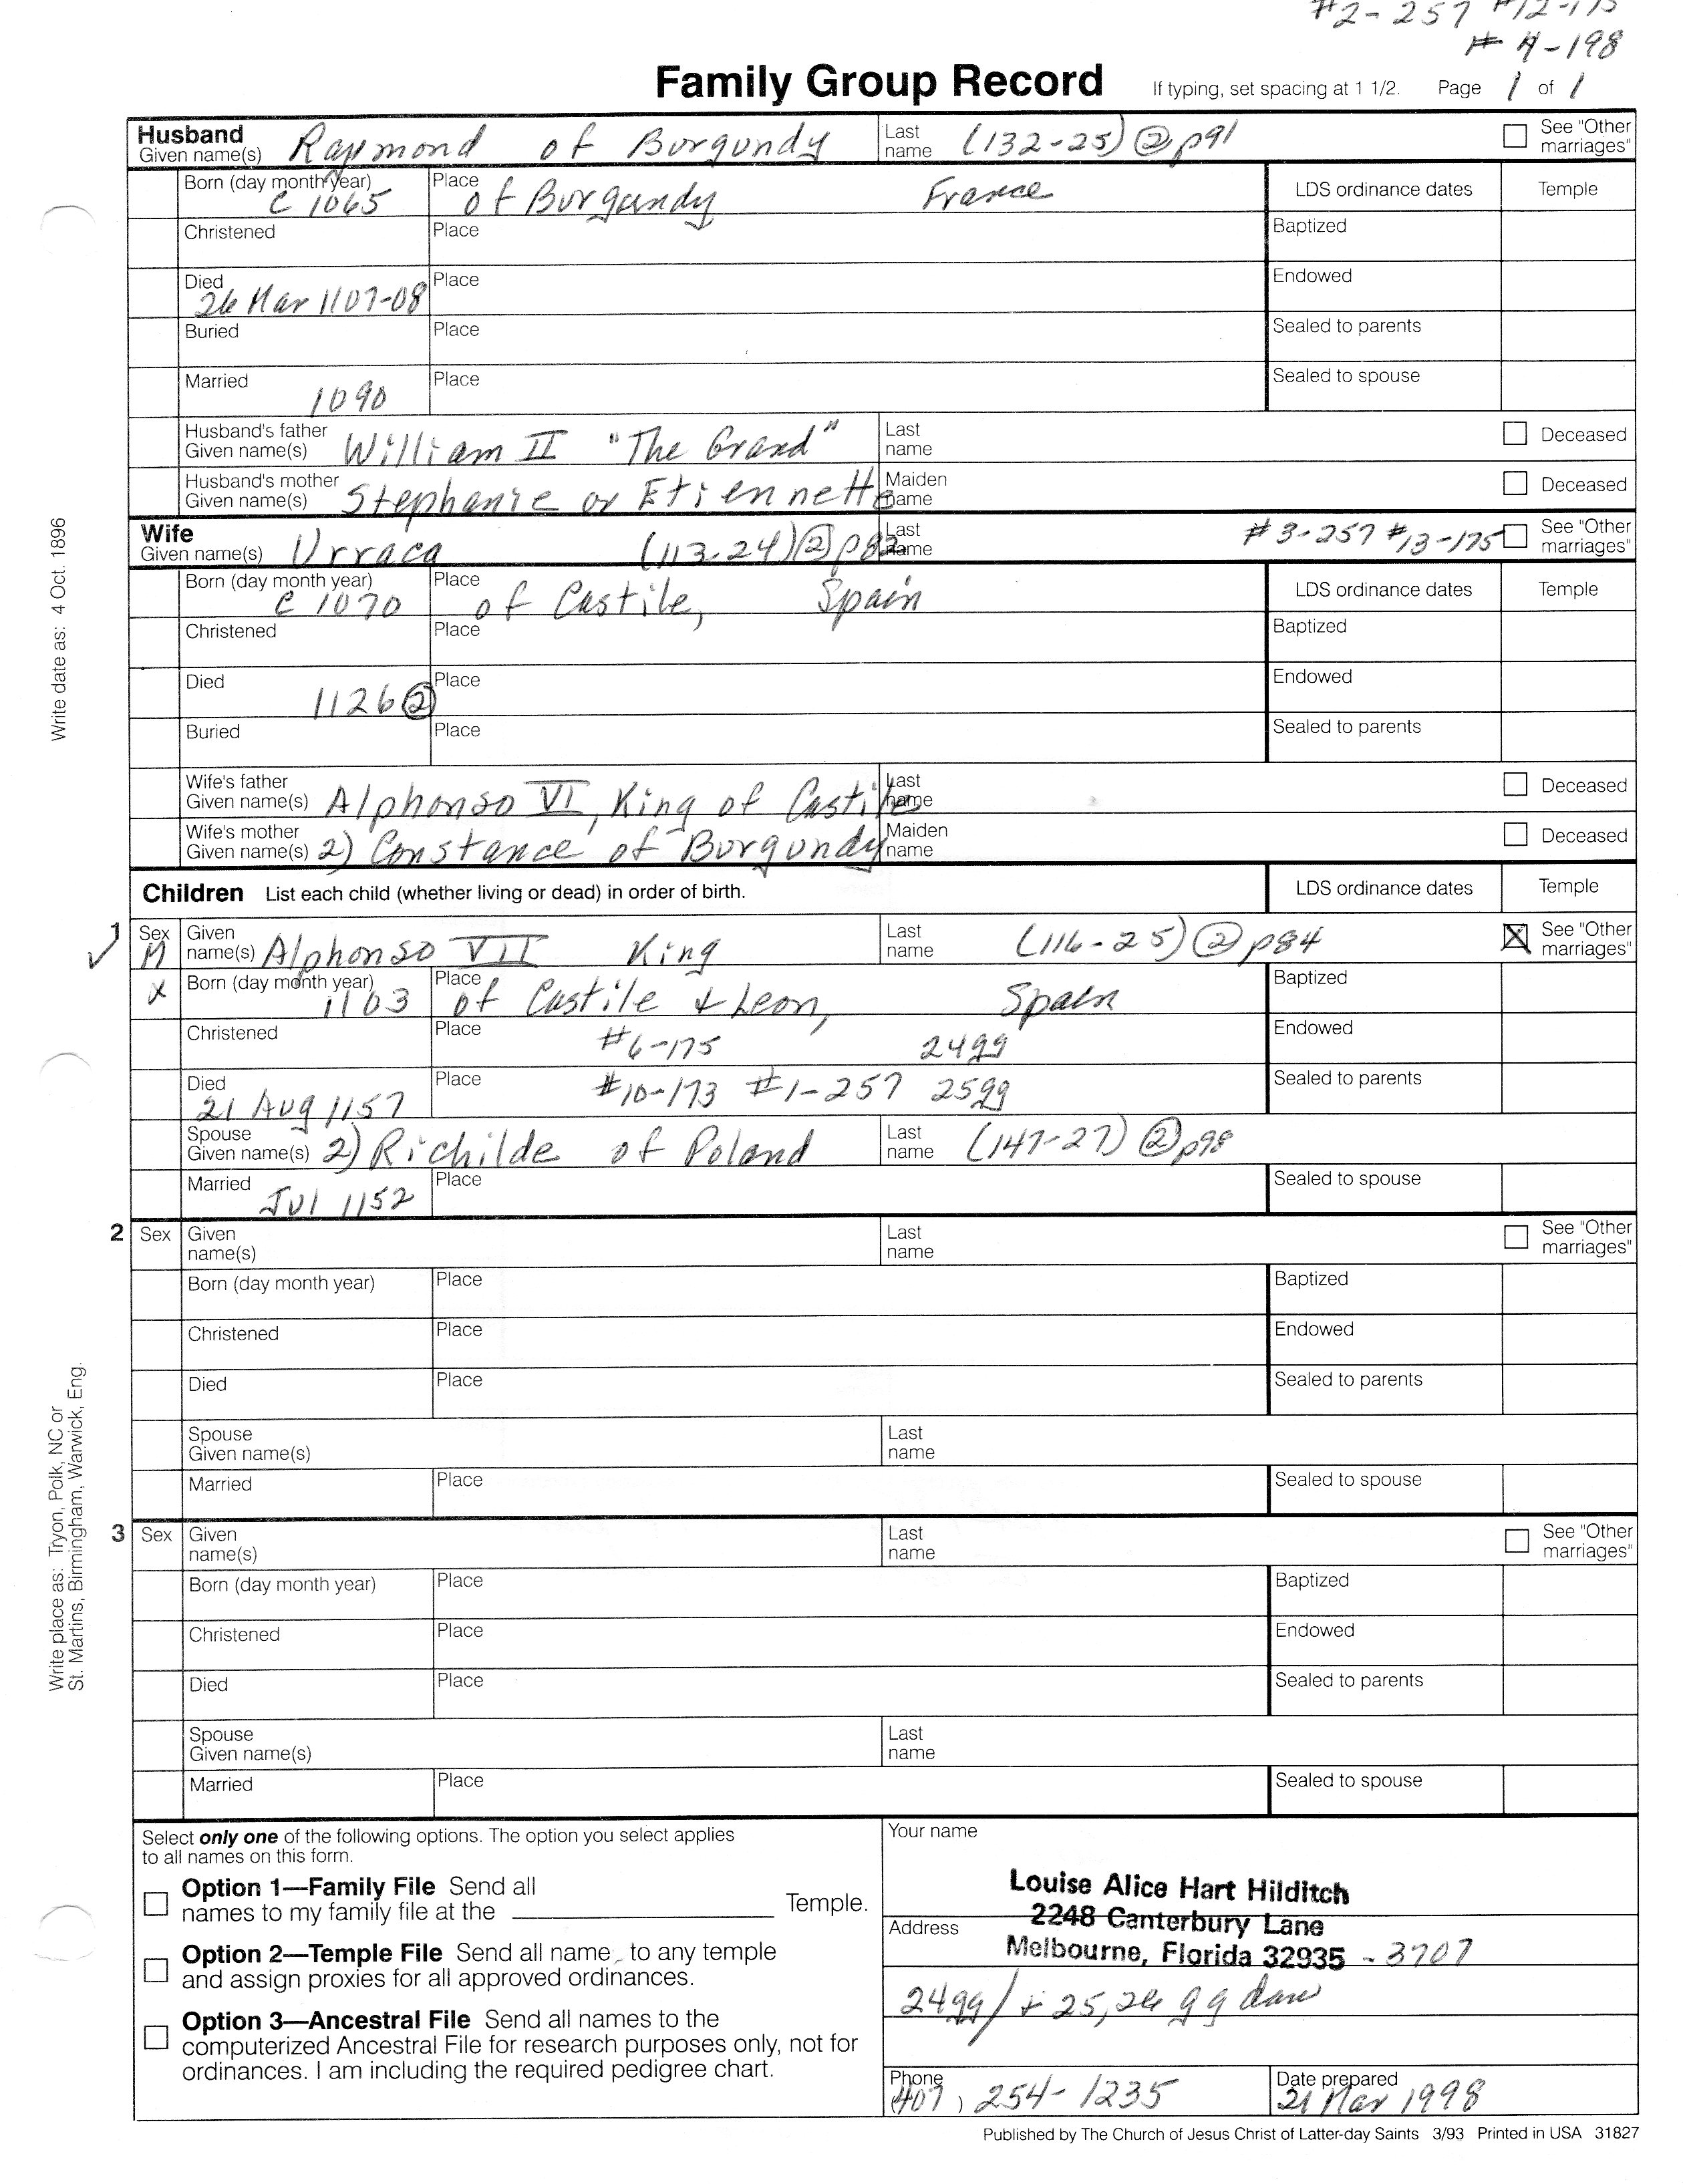 #2-257 #12-175
# 4-198
Family Group Record If typing, set spacing at 1 1/2. Page 1 of 1
Husband
Given name(s) Raymond of Burgundy Last name (132-25) ② p91 See "Other marriages"
Born (day month year) c 1065 Place of Burgundy France LDS ordinance dates Temple
Christened Place Baptized
Died 26 Mar 1107-08 Place Endowed
Buried Place Sealed to parents
Married 1090 Place Sealed to spouse
Husband's father Given name(s) William II "The Grand" Last name Deceased
Husband's mother Given name(s) Stephanie or Etiennette Maiden name Deceased
Wife
Given name(s) Urraca (113-24) ② p82 Last name #3-257 #13-175 See "Other marriages"
Born (day month year) c 1070 Place of Castile, Spain LDS ordinance dates Temple
Christened Place Baptized
Died 1126 ② Place Endowed
Buried Place Sealed to parents
Wife's father Given name(s) Alphonso VI, King of Castile Last name Deceased
Wife's mother Given name(s) 2) Constance of Burgundy Maiden name Deceased
Children List each child (whether living or dead) in order of birth. LDS ordinance dates Temple
1 Sex M Given name(s) Alphonso VII King Last name (116-25) ② p84 See "Other marriages"
X Born (day month year) 1103 Place of Castile + Leon, Spain Baptized
Christened Place #6-175 24gg Endowed
Died 21 Aug 1157 Place #10-173 #1-257 25gg Sealed to parents
Spouse Given name(s) 2) Richilde of Poland Last name (147-27) ② p98
Married Jul 1152 Place Sealed to spouse
2 Sex Given name(s) Last name See "Other marriages"
Born (day month year) Place Baptized
Christened Place Endowed
Died Place Sealed to parents
Spouse Given name(s) Last name
Married Place Sealed to spouse
3 Sex Given name(s) Last name See "Other marriages"
Born (day month year) Place Baptized
Christened Place Endowed
Died Place Sealed to parents
Spouse Given name(s) Last name
Married Place Sealed to spouse
Select only one of the following options. The option you select applies
to all names on this form.
Option 1—Family File Send all
names to my family file at the Temple.
Option 2—Temple File Send all name to any temple
and assign proxies for all approved ordinances.
Option 3—Ancestral File Send all names to the
computerized Ancestral File for research purposes only, not for
ordinances. I am including the required pedigree chart.
Your name
Louise Alice Hart Hilditch
Address 2248 Canterbury Lane
Melbourne, Florida 32935 - 3707
24gg/ + 25, 26 gg
Phone (407) 254-1235 Date prepared 21 Mar 1998
Published by The Church of Jesus Christ of Latter-day Saints 3/93 Printed in USA 31827
Write date as: 4 Oct. 1896
Write place as: Tryon, Polk, NC or
St. Martins, Birmingham, Warwick, Eng.